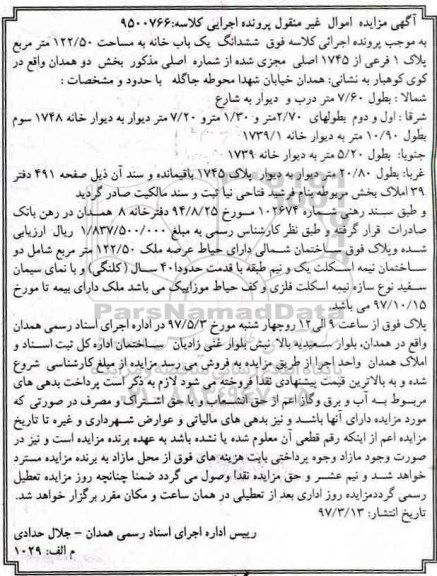 آگهی مزایده اموال غیر منقول پرونده اجرایی کلاسه:۹۵۰۰۷۶۶
به موجب پرونده اجرائی کلاسه فوق ششدانگ یک باب خانه به مساحت ۱۲۲/۵۰ متر مربع
پلاک ۱ فرعی از ۱۷۴۵ اصلی مجزی شده از شماره اصلی مذکور بخش دو همدان واقع در
کوی کوهبار به نشانی: همدان خیابان شهدا محوطه جاگله با حدود و مشخصات :
شمالا : بطول ۷/۶۰ متر درب و دیوار به شارع
شرقا : اول و دوم بطولهای ۲/۷۰متر و ۱/۳۰ مترو ۷/۲۰ متر دیوار به دیوار خانه ۱۷۴۸ سوم
بطول ۱۰/۹۰ متر به دیوار خانه ۱۷۳۹/۱
جنوبا: بطول ۵/۲۰ متر به دیوار خانه ۱۷۳۹
غربا: بطول ۲۰/۸۰ متر دیوار به دیوار پلاک ۱۷۴۵ باقیمانده و سند آن ذیل صفحه ۴۹۱ دفتر
۳۹ املاک بخش مربوطه بنام فرشید فتاحی نیا ثبت و سند مالکیت صادر گردید
و طبق سند رهنی شماره ۱۰۲۶۷۴ مورخ ۹۴/۸/۲۵ دفترخانه ۸ همدان در رهن بانک
صادرات قرار گرفته و طبق نظر کارشناس رسمی به مبلغ ۱/۸۳۷/۵۰۰/۰۰۰ ریال ارزیابی
شده وپلاک فوق ساختمان شمالی دارای حیاط عرصه ملک ۱۲۲/۵۰ متر مربع شامل دو
ساختمان نیمه اسکلت یک و نیم طبقه با قدمت حدودا۴۰ سال (کلنگی) و با نمای سیمان
سفید نوع سازه نیمه اسکلت فلزی و کف حیاط موزاییک می باشد ملک دارای بیمه تا مورخ
۹۷/۱۰/۱۵ می باشد.
پلاک فوق از ساعت ۹ الی ۱۲ روزچهار شنبه مورخ ۹۷/۵/۳ در اداره اجرای اسناد رسمی همدان
واقع در همدان، بلوار سعیدیه بالا نبش بلوار غنی زادیان ساختمان اداره کل ثبت اسناد و
املاک همدان واحد اجرا از طریق مزایده به فروش می رسد.مزایده از مبلغ کارشناسی شروع
شده و به بالاترین قیمت پیشنهادی نقدا فروخته می شود لازم به ذکر است پرداخت بدهی های
مربوط به آب و برق وگاز اعم از حق انشعاب و یا حق اشتراک و مصرف در صورتی که
مورد مزایده دارای آنها باشد و نیز بدهی های مالیاتی و عوارض شهرداری و غیره تا تاریخ
مزایده اعم از اینکه رقم قطعی آن معلوم شده یا نشده باشد به عهده برنده مزایده است و نیز در
صورت وجود مازاد وجوه پرداختی بابت هزینه های فوق از محل مازاد به برنده مزایده مسترد
خواهد شد و نیم عشر و حق مزایده نقدا وصول می گردد ضمنا چنانچه روز مزایده تعطیل
رسمی گرددمزایده روز اداری بعد از تعطیلی در همان ساعت و مکان مقرر برگزار خواهد شد.
تاریخ انتشار: ۹۷/۳/۱۳
رییس اداره اجرای اسناد رسمی همدان - جلال حدادی
م الف: ۱۰۲۹
ParsNamadData